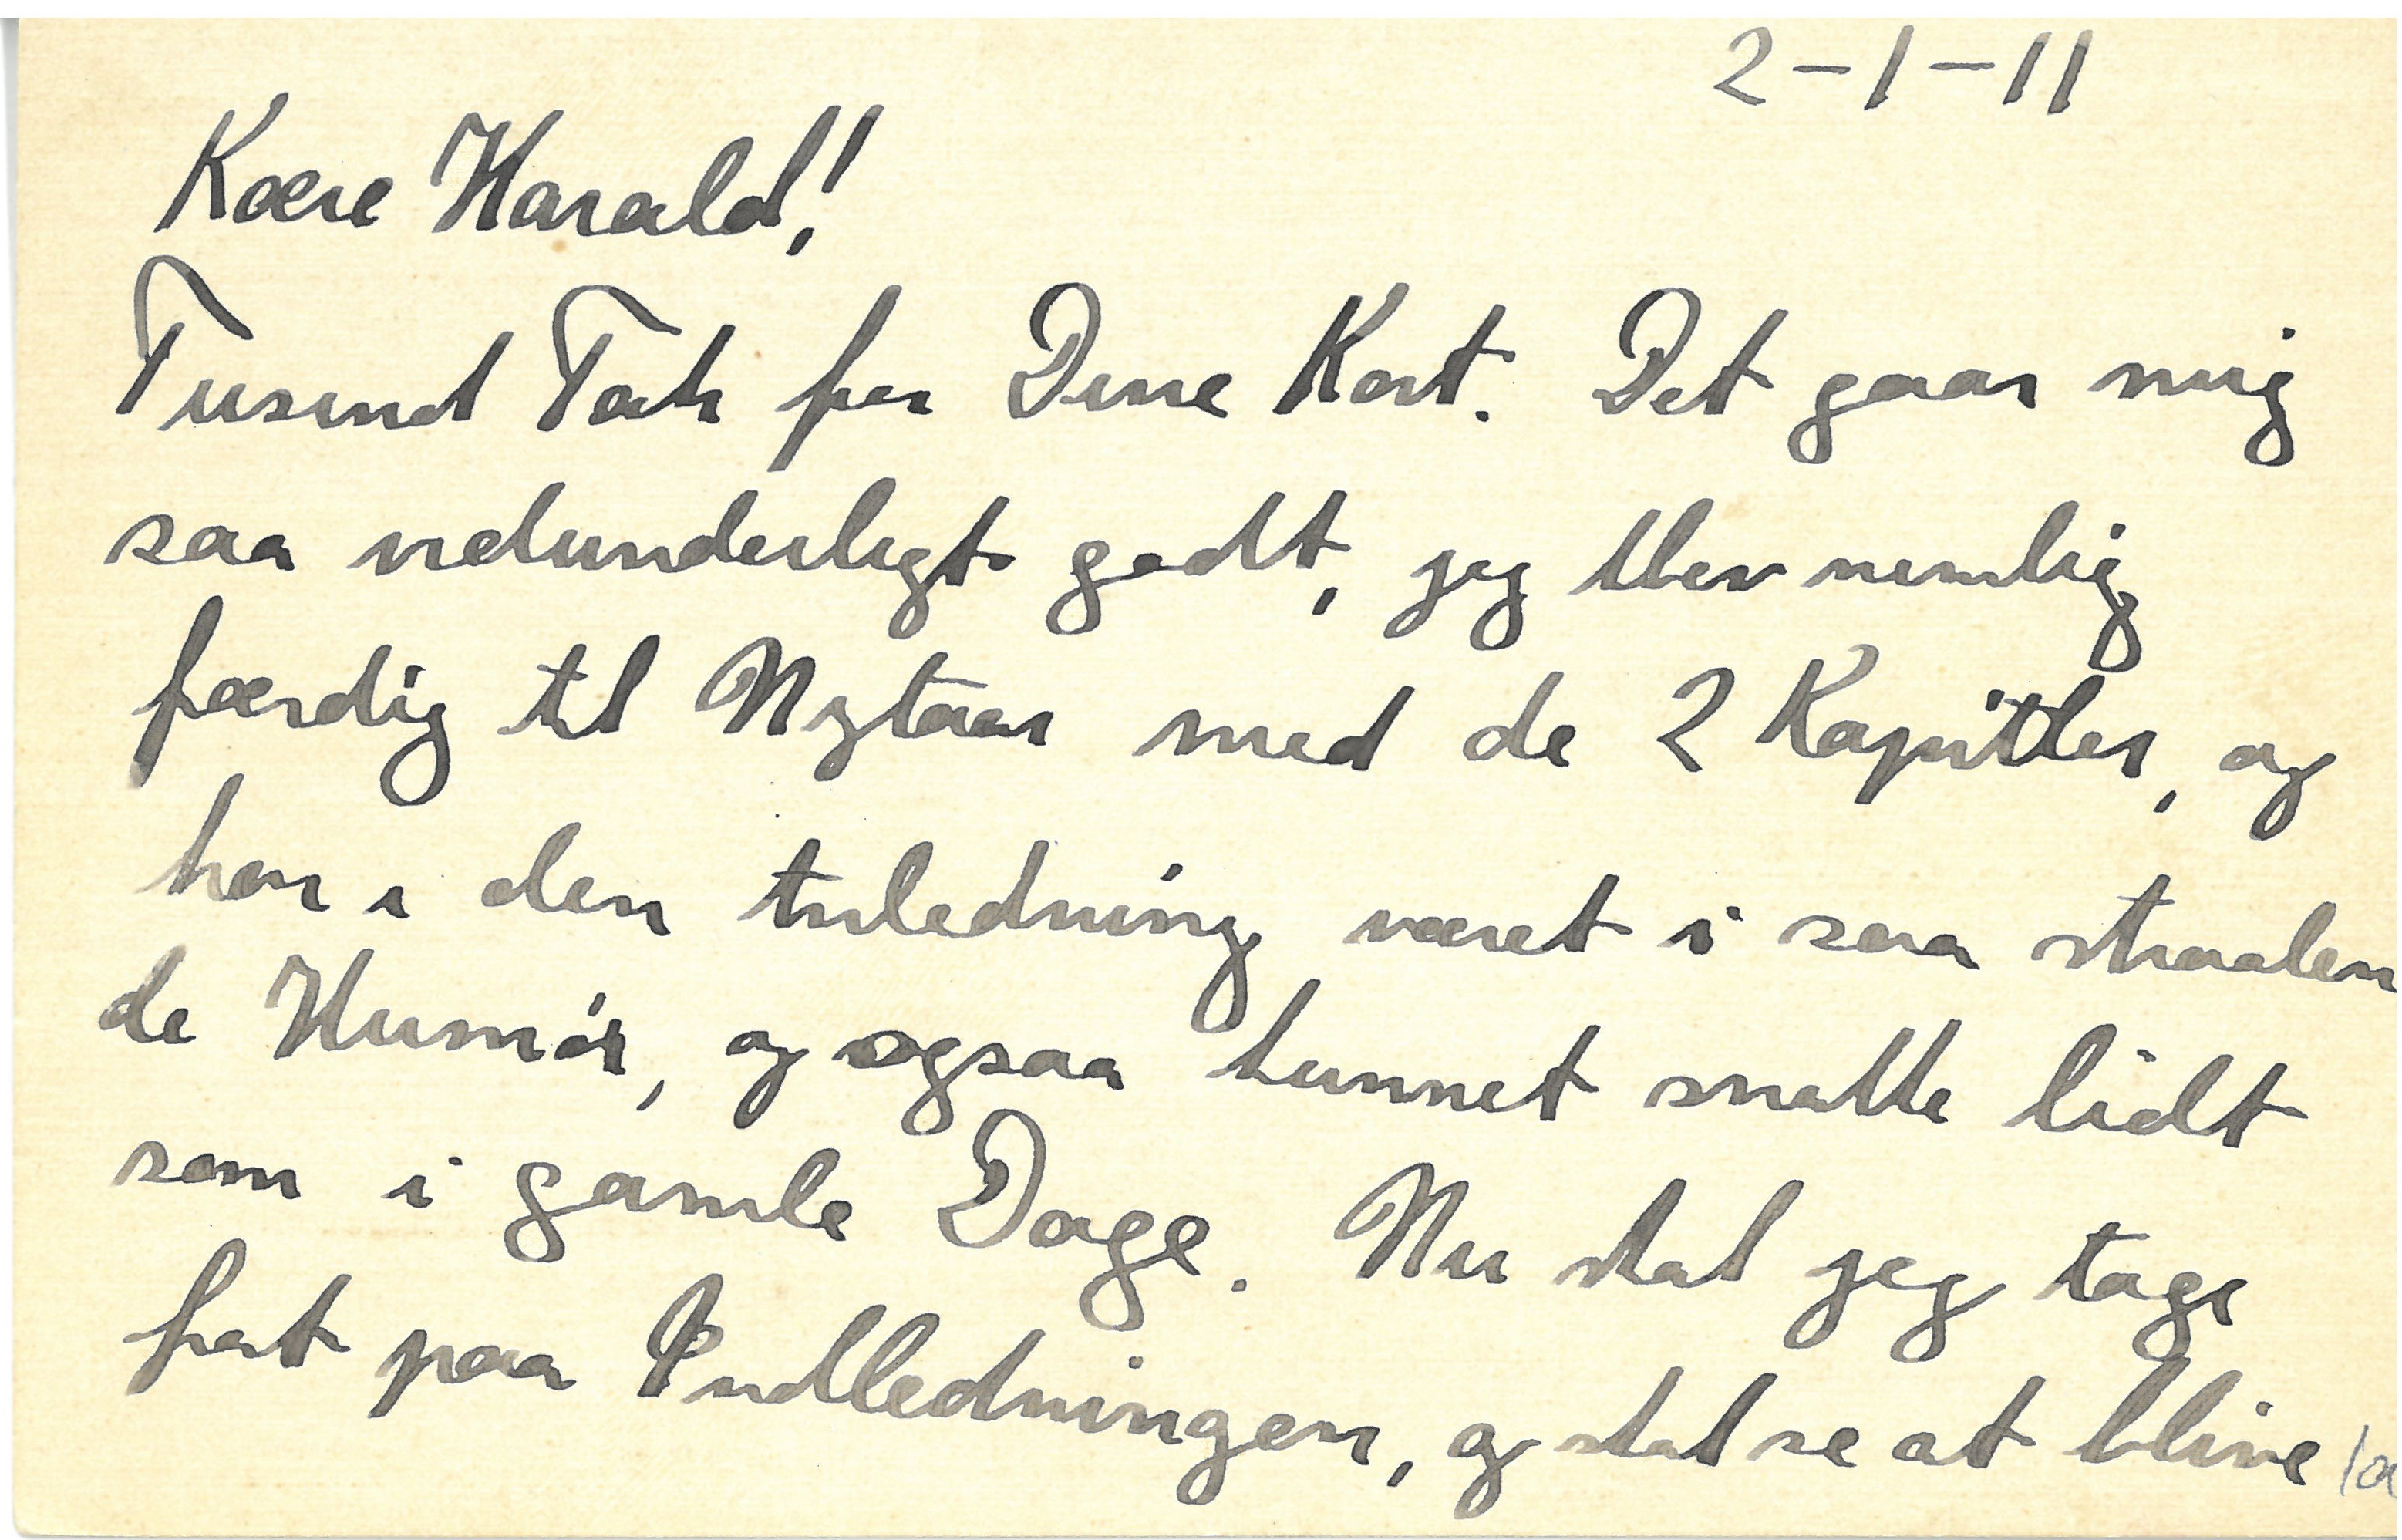 2-1-11
Kære Harald!
Tusind Tak for Dine Kort. Det gaar mig
saa vidunderligt godt, jeg blev nemlig
færdig til Nytaar med de 2 Kapitler, og
har i den Anledning været i saa straalen
de Humør, og ogsaa kunnet snakke lidt
som i gamle Dage. Nu skal jeg tage
fat paa Indledningen, og skal se at blive